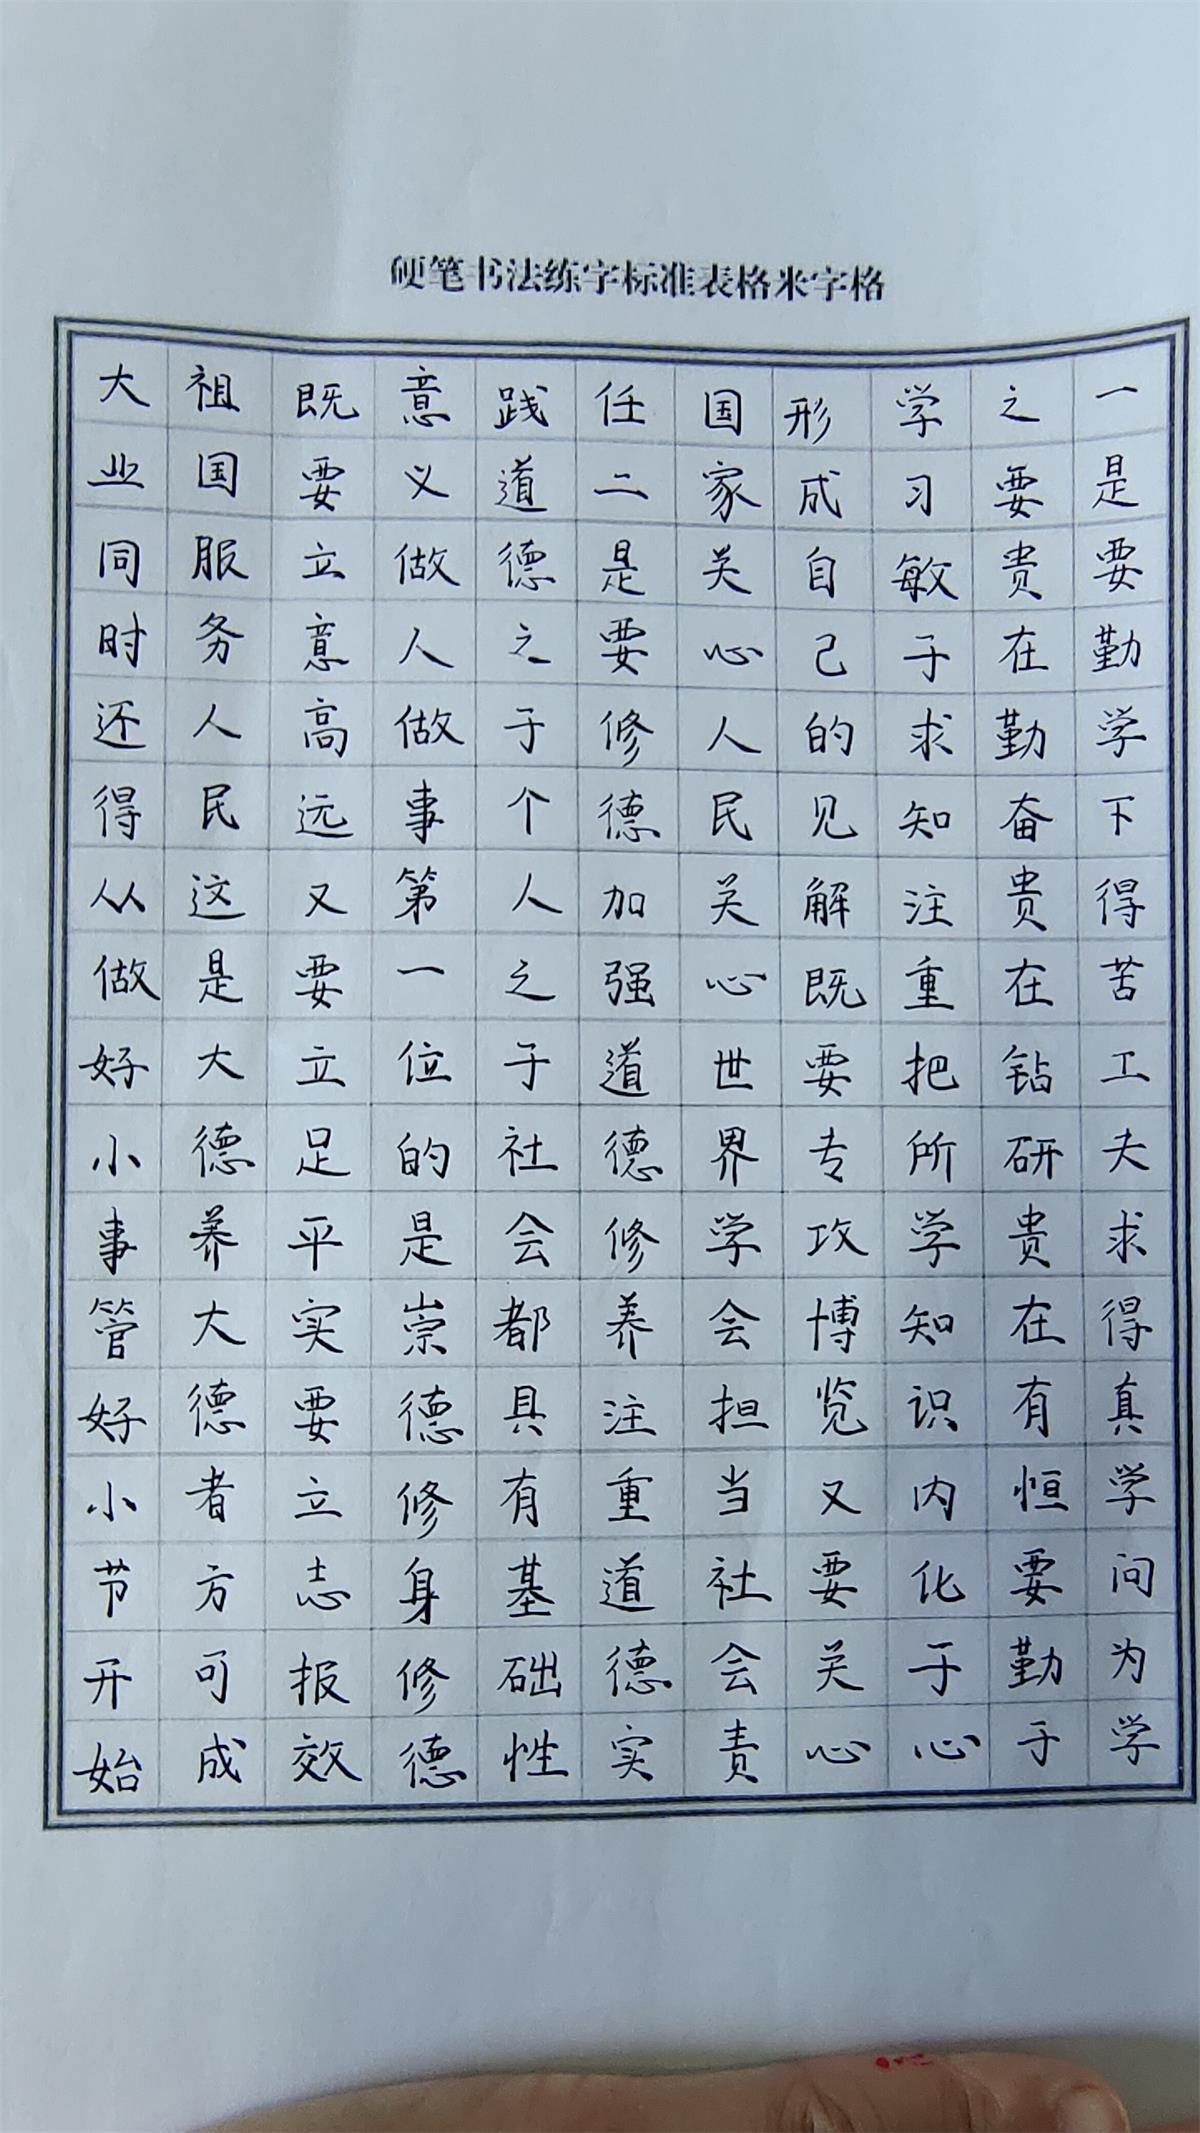 硬笔书法练字标准表格米字格
一是要勤学下得苦工夫求得真学问为学
之要贵在勤奋贵在钻研贵在有恒要勤于
学习敏于求知注重把所学知识内化于心
形成自己的见解既要专攻博览又要关心
国家关心人民关心世界学会担当社会责
任二是要修德加强道德修养注重道德实
践道德之于个人之于社会都具有基础性
意义做人做事第一位的是崇德修身修德
既要立意高远又要立足平实要立志报效
祖国服务人民这是大德养大德者方可成
大业同时还得从做好小事管好小节开始